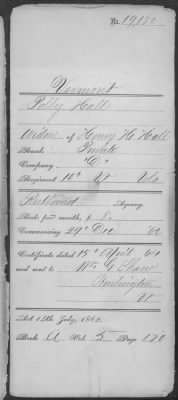 No. 19180
Vermont
Polly Hall
Widow of Henry H. Hall
Rank: Private
Company "D"
Regiment 10" Vt Vols
Rutland Agency.
Rate per month, $ 8.
Commencing 29" Dec '62
Certificate dated 15" April '64
and sent to Wm G Shaw
Burlington
Vt
Act 14th July, 1862.
Book A Vol. 5 Page 120